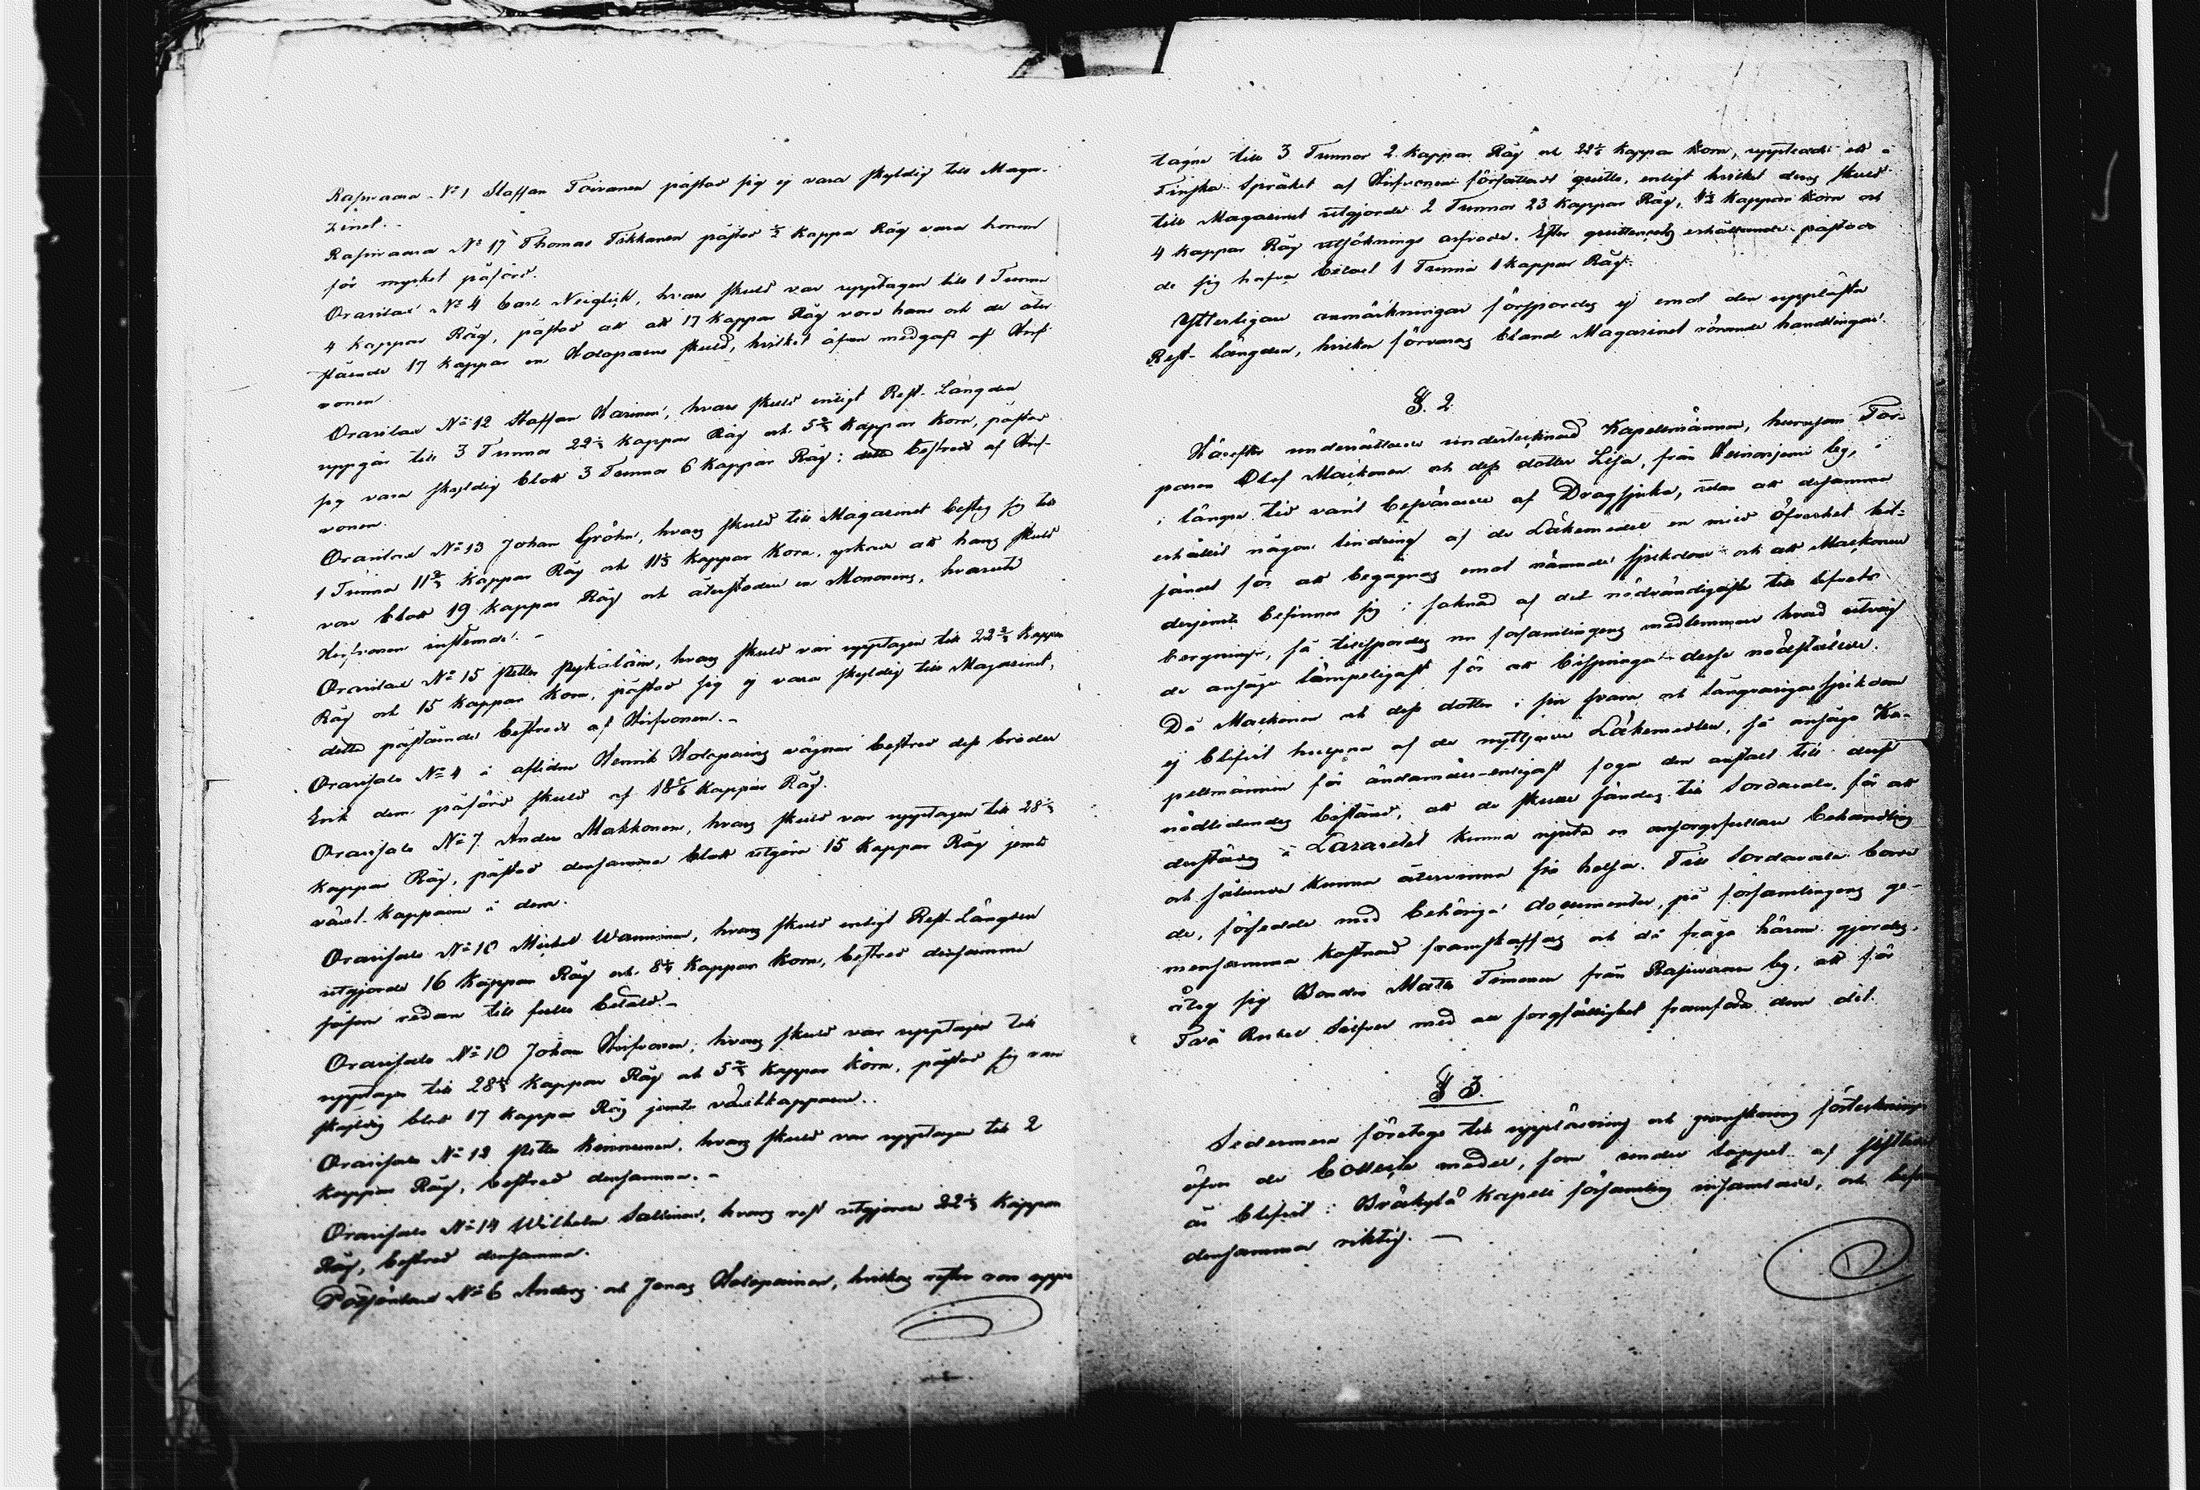 Rasivaara N:o 1 Staffan Toivanen påstod sig ej vara skyldig till Maga-
zinet.
Rasivaara N:o 17 Thomas Tikkanen påstod ½ Kappa Råg vara honom
för mycket påförd.
Oravilax N:o 4 Carl Neiglick, hvars skuld var upptagen till 1 Tunna
4 Kappar Råg, påstod att 17 Kappar Råg vore hans och de åter
stående 17 Kappar en Holopaines skuld, hvilket äfven medgafs af Hirf-
vonen
Oravilax N:o 12 Staffan, hvars skuld enligt Rest-Längden
uppgår till 3 Tunnor 22 Kappar Råg och 5 Kappar Korn, påstod
sig vara skyldig blott 3 Tunnor 6 Kappar Råg; detta bestreds af Hirf-
vonen.
Oravilax N:o 13 Johan Gröhn, hvars skuld till Magazinet besteg sig till
1 Tunna 11 Kappar Råg och 11 Kappar Korn, yrkade att hans skuld
vore blott 19 Kappar Råg och återstoden en Mononens, hvaruti
Hirfvonen instämde. -
Oravilax N:o 15 Petter Pykäläin, hvars skuld var upptagen till 22 Kappar
Råg och 15 Kappar Korn, påstod sig ej vara skyldig till Magazinet,
detta påstående bestreds af Hirfvonen. -
Oravisalo N:o 4 å aflidne Henrik Holopaines vägnar bestred dess broder
Erik dem påförd skuld af 18 Kappar Råg.
Oravisalo N:o 7 Anders Makkonen, hvars skuld var upptagen till 28
Kappar Råg, påstod densamma blott utgöra 15 Kappar Råg jemte
växt-kapparne å dem.
Oravisalo N:o 10 Michel Wänninen, hvars skuld enligt Rest-Längden
utgjorde 16 Kappar Råg och 8 Kappar Korn, bestred densamma
såsom redan till fullo betald -
Oravisalo N:o 10 Johan Hirfvonen, hvars skuld var upptagen till
upptagen till 28 Kappar Råg och 5 Kappar Korn, påstod sig vara
skyldig blott 17 Kappar Råg jemte växtkapparne.
Oravisalo N:o 12 Petter Kinnunen, hvars skuld var upptagen till 2
Kappar Råg, bestred densamma. -
Oravisalo N:o 14 Wilhelm Sallinen, hvars rest utgjorde 22 Kappar
Råg, bestred densamma.
N:o 6 Anders och Jonas Holopainen, hvilkas rester voro upp-
tagne till 3 Tunnor 2 Kappar Råg och 22 Kappar Korn, uppteedde ett å
Finska Språket af Hirfvonen författadt qvitto, enligt hvilket deras skuld
till Magazinet utgjorde 2 Tunnor 23 Kappar Råg, Kappar Korn och
4 Kappar Råg utsöknings arfvode. Efter qvittensens erhållande påstodo
de sig hafva betalt 1 Tunna 1 Kappar Råg.
Ytterligare anmärkningar förspordes ej emot den upplästa
Rest-Längden, hvilken förvaras bland Magazinet rörande handlingar.
§. 2
Härefter underrättade undertecknad Kapellmännen, hurusom Tor-
paren Olof Maikonen och dess dotter Lisa, från by, i
längre tid varit besvärade af Dragsjuka, utan att desamma
erhållit någon lindring af de Läkemedel en med Öfverhet till-
sändt för att begagnas emot nämnde sjukdom och att Maikonen
derjemte befinner sig i saknad af det nödvändigaste till lifvets
bergning, så tillspordes nu församlingens medlemmar hvad utväg
de ansågo lämpeligast för att bispringa desse nödställde.
Då Maikonen och dess dotter i sin svåra och långvariga sjukdom
ej blifvit hulpna af de nyttjade Läkemedlen, så ansågo Ka-
pellmännen för ändamåls-enligast foga den anstalt till desse
nödlidandes bistånd, att de skulle sändas till Sordavala, för att
derstädes å Lazarettet kunna njuta en omsorgsfullare behandling
och sålunda kunna återvinna sin helsa. Till Sordavala borde
de, försedde med behöriga documenter, på församlingens ge-
mensamma kostnad framskaffas och då fråga härom gjordes,
åtog sig Bonden Matts Timonen från Rasivaara by, att för
Två Rubel Silfver med all sorgfällighet framföra dem dit.
§ 3.
Sedermera företogs till uppläsning och granskning förteckningen
öfver de Collecte medel, som under loppet af sistlidne
år blifvit i Bräkylä Kapell församling insamlade, och befanns
densamma riktig. -